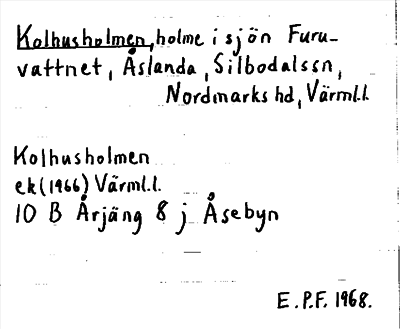 Kolhusholmen, holme i sjön Furu-
vattnet, Åslanda, Silbodalssn,
Nordmarks hd, Värml.l.
Kolhusholmen
ek (1966) Värml.l.
10 B Årjäng 8 j Åsebyn
E.P.F. 1968.